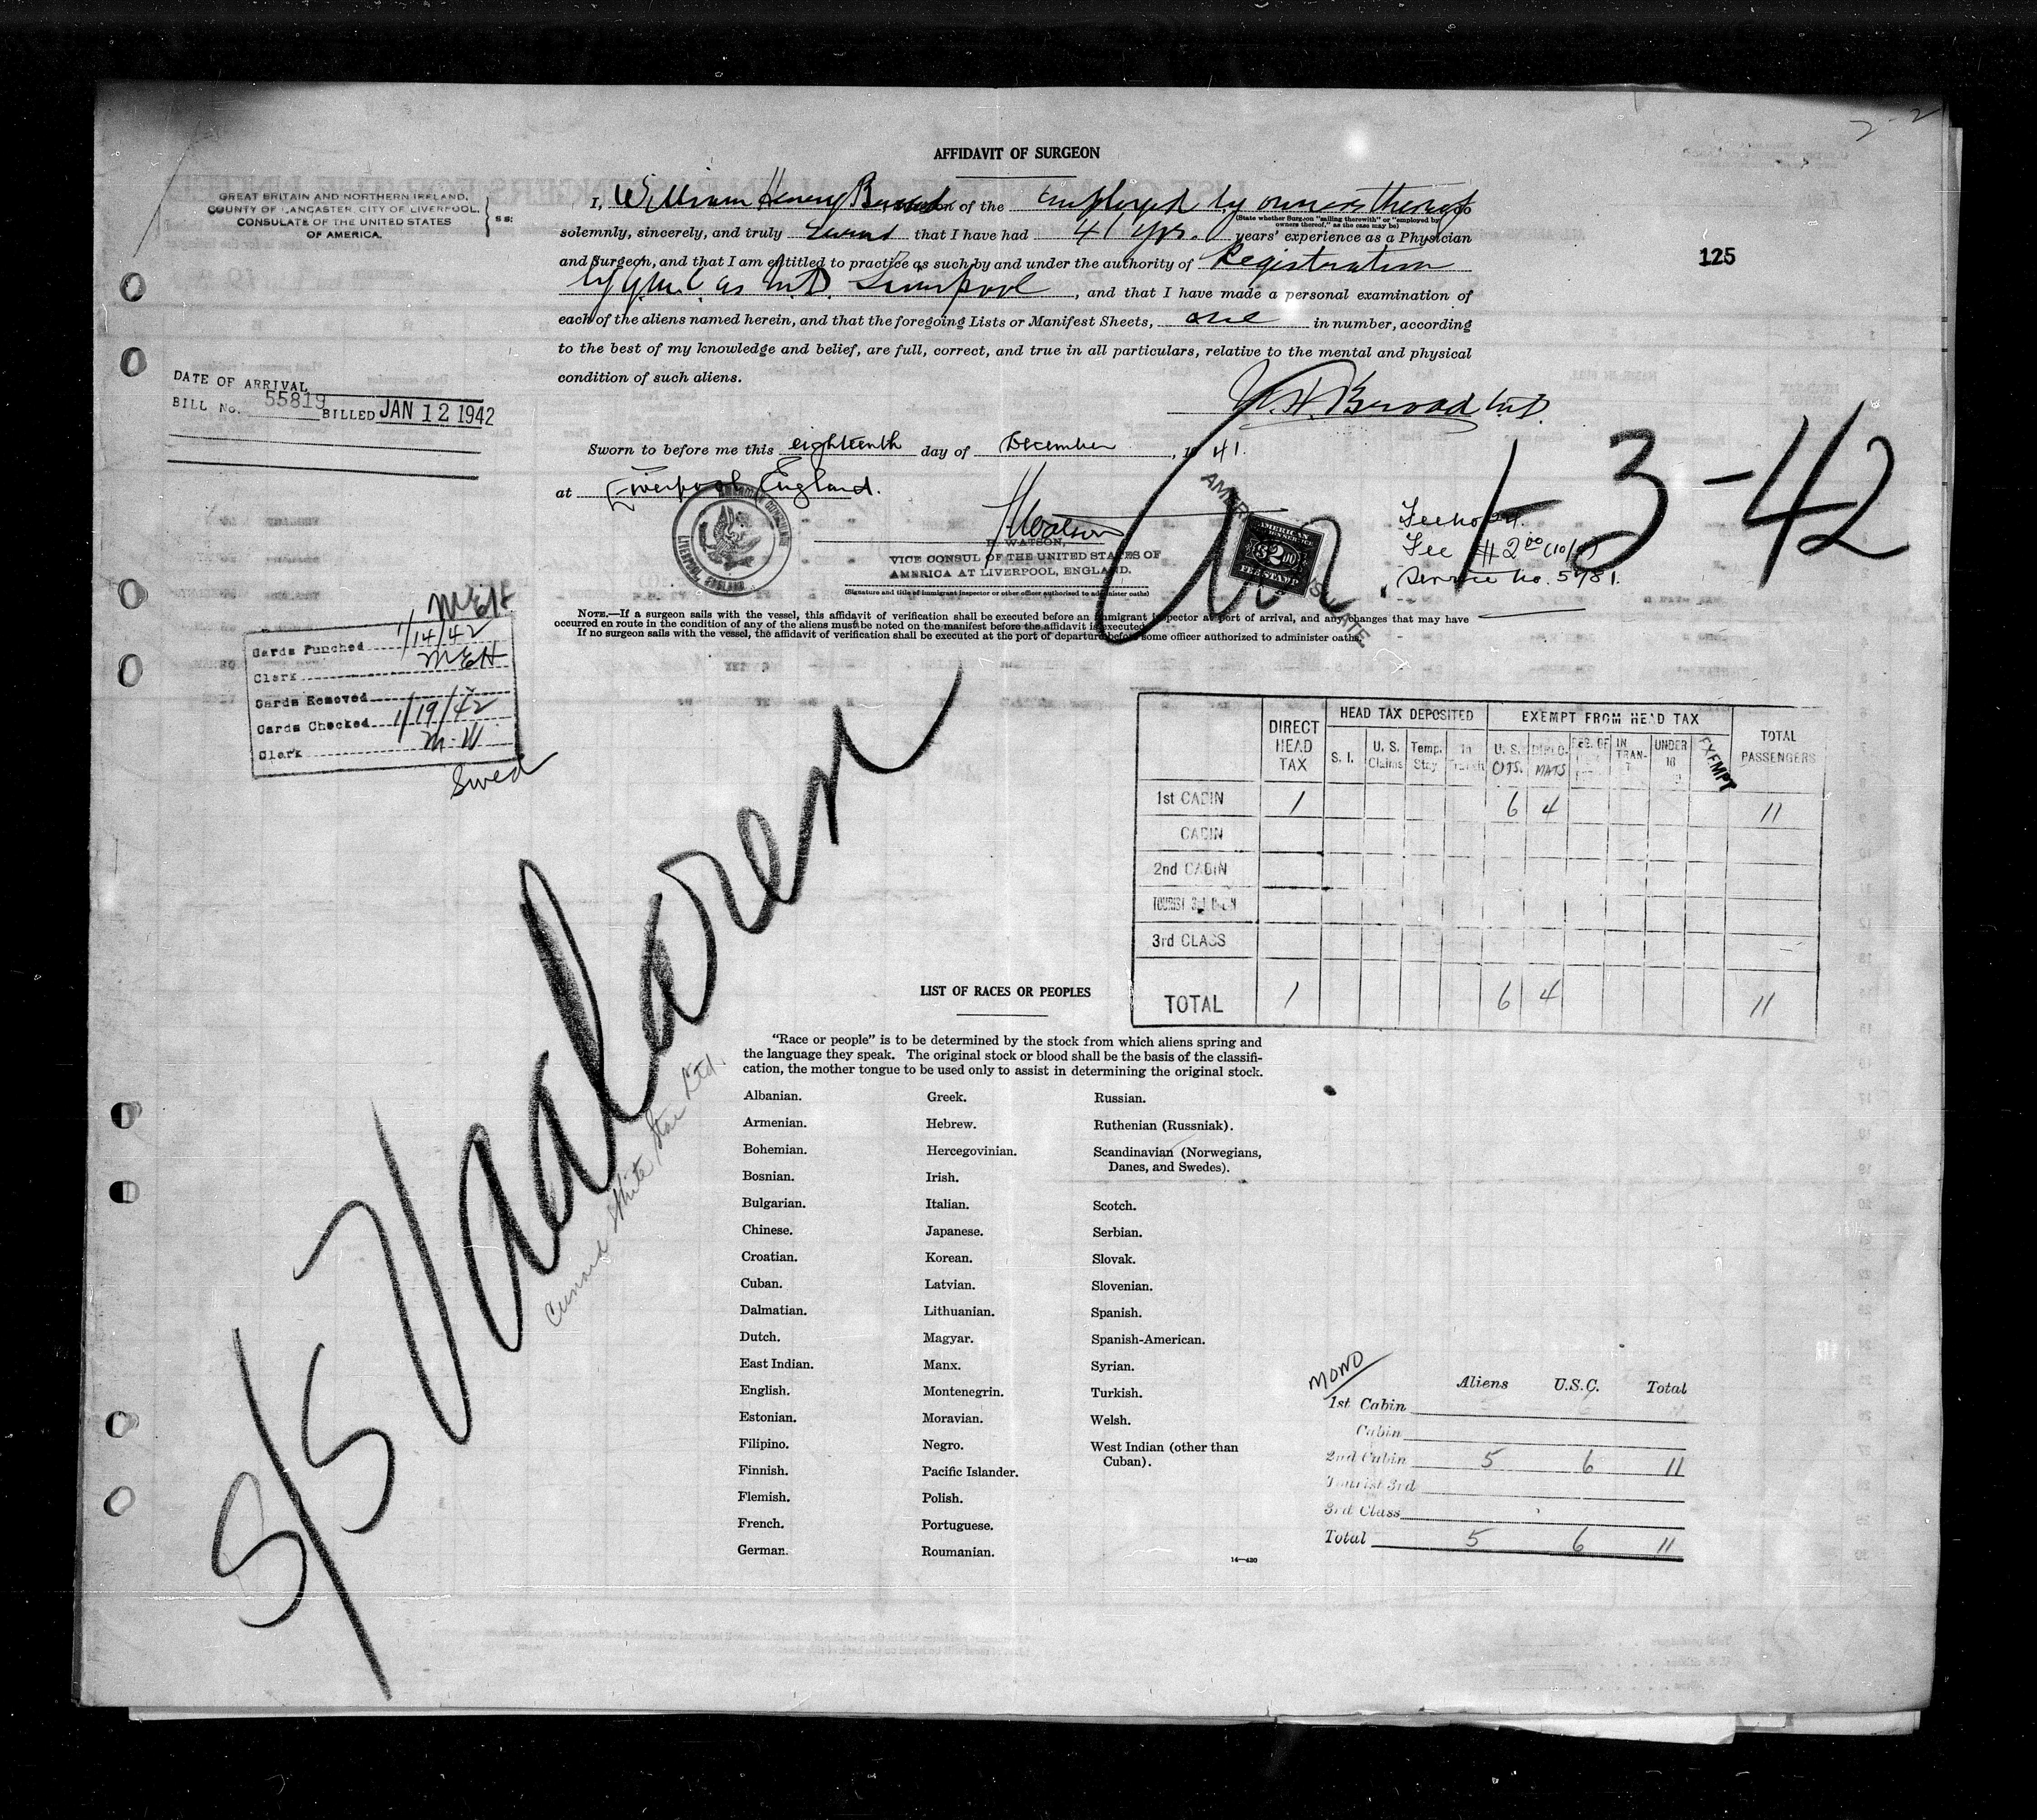 2-2
AFFIDAVIT OF SURGEON
GREAT BRITAIN AND NORTHERN IRELAND,
COUNTY OF LANCASTER, CITY OF LIVERPOOL,
CONSULATE OF THE UNITED STATES
OF AMERICA.
ss:
125
I, William Henry of the employed by owners thereof
(State whether Surgeon "sailing therewith" or "employed by
owners thereof," as the case may be)
solemnly, sincerely, and truly swear that I have had 41 yrs. years' experience as a Physician
and Surgeon, and that I am entitled to practice as such by and under the authority of Registration
by G.M.C. as M.D. Liverpool, and that I have made a personal examination of
each of the aliens named herein, and that the foregoing Lists or Manifest Sheets, one in number, according
to the best of my knowledge and belief, are full, correct, and true in all particulars, relative to the mental and physical
condition of such aliens.
DATE OF ARRIVAL
BILL No. 55819 BILLED JAN 12 1942
Sworn to before me this eighteenth day of December, 1941.
at Liverpool, England.
AMERICAN CONSULATE
LIVERPOOL, ENGLAND
H. WATSON,
VICE CONSUL OF THE UNITED STATES OF
AMERICA AT LIVERPOOL, ENGLAND.
(Signature and title of immigrant inspector or other officer authorized to administer oaths)
AMERICAN
$2.00
FEE STAMP
Fee No.
Fee $2.00
Service No. 5781.
1-3-42
NOTE.—If a surgeon sails with the vessel, this affidavit of verification shall be executed before an immigrant inspector at port of arrival, and any changes that may have
occurred en route in the condition of any of the aliens must be noted on the manifest before the affidavit is executed.
If no surgeon sails with the vessel, the affidavit of verification shall be executed at the port of departure before some officer authorized to administer oaths.
MEH
Cards Punched 1/14/42
Clerk MEH
Cards Removed
Cards Checked 1/19/42
Clerk M.W
Swed
DIRECT HEAD TAX HEAD TAX DEPOSITED EXEMPT FROM HEAD TAX TOTAL PASSENGERS
S. I. U. S. Claims Temp. Stay In Transit U. S. CITS. DIPLOMATS IN TRAN- UNDER 16 EXEMPT
1st CABIN 1 6 4 11
CABIN
2nd CABIN
TOURIST 3rd CABIN
3rd CLASS
TOTAL 1 6 4 11
S/S Valaren
Cunard White Star Ltd.
LIST OF RACES OR PEOPLES
"Race or people" is to be determined by the stock from which aliens spring and
the language they speak. The original stock or blood shall be the basis of the classifi-
cation, the mother tongue to be used only to assist in determining the original stock.
Albanian.
Armenian.
Bohemian.
Bosnian.
Bulgarian.
Chinese.
Croatian.
Cuban.
Dalmatian.
Dutch.
East Indian.
English.
Estonian.
Filipino.
Finnish.
Flemish.
French.
German.
Greek.
Hebrew.
Hercegovinian.
Irish.
Italian.
Japanese.
Korean.
Latvian.
Lithuanian.
Magyar.
Manx.
Montenegrin.
Moravian.
Negro.
Pacific Islander.
Polish.
Portuguese.
Roumanian.
Russian.
Ruthenian (Russniak).
Scandinavian (Norwegians,
Danes, and Swedes).
Scotch.
Serbian.
Slovak.
Slovenian.
Spanish.
Spanish-American.
Syrian.
Turkish.
Welsh.
West Indian (other than
Cuban).
14—430
MONO
Aliens U.S.C. Total
1st Cabin
Cabin
2nd Cabin 5 6 11
Tourist 3rd
3rd Class
Total 5 6 11